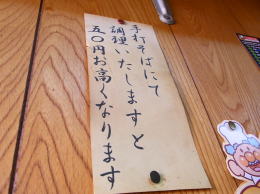 手打そばにて
調理いたしますと
五〇円お高くなります